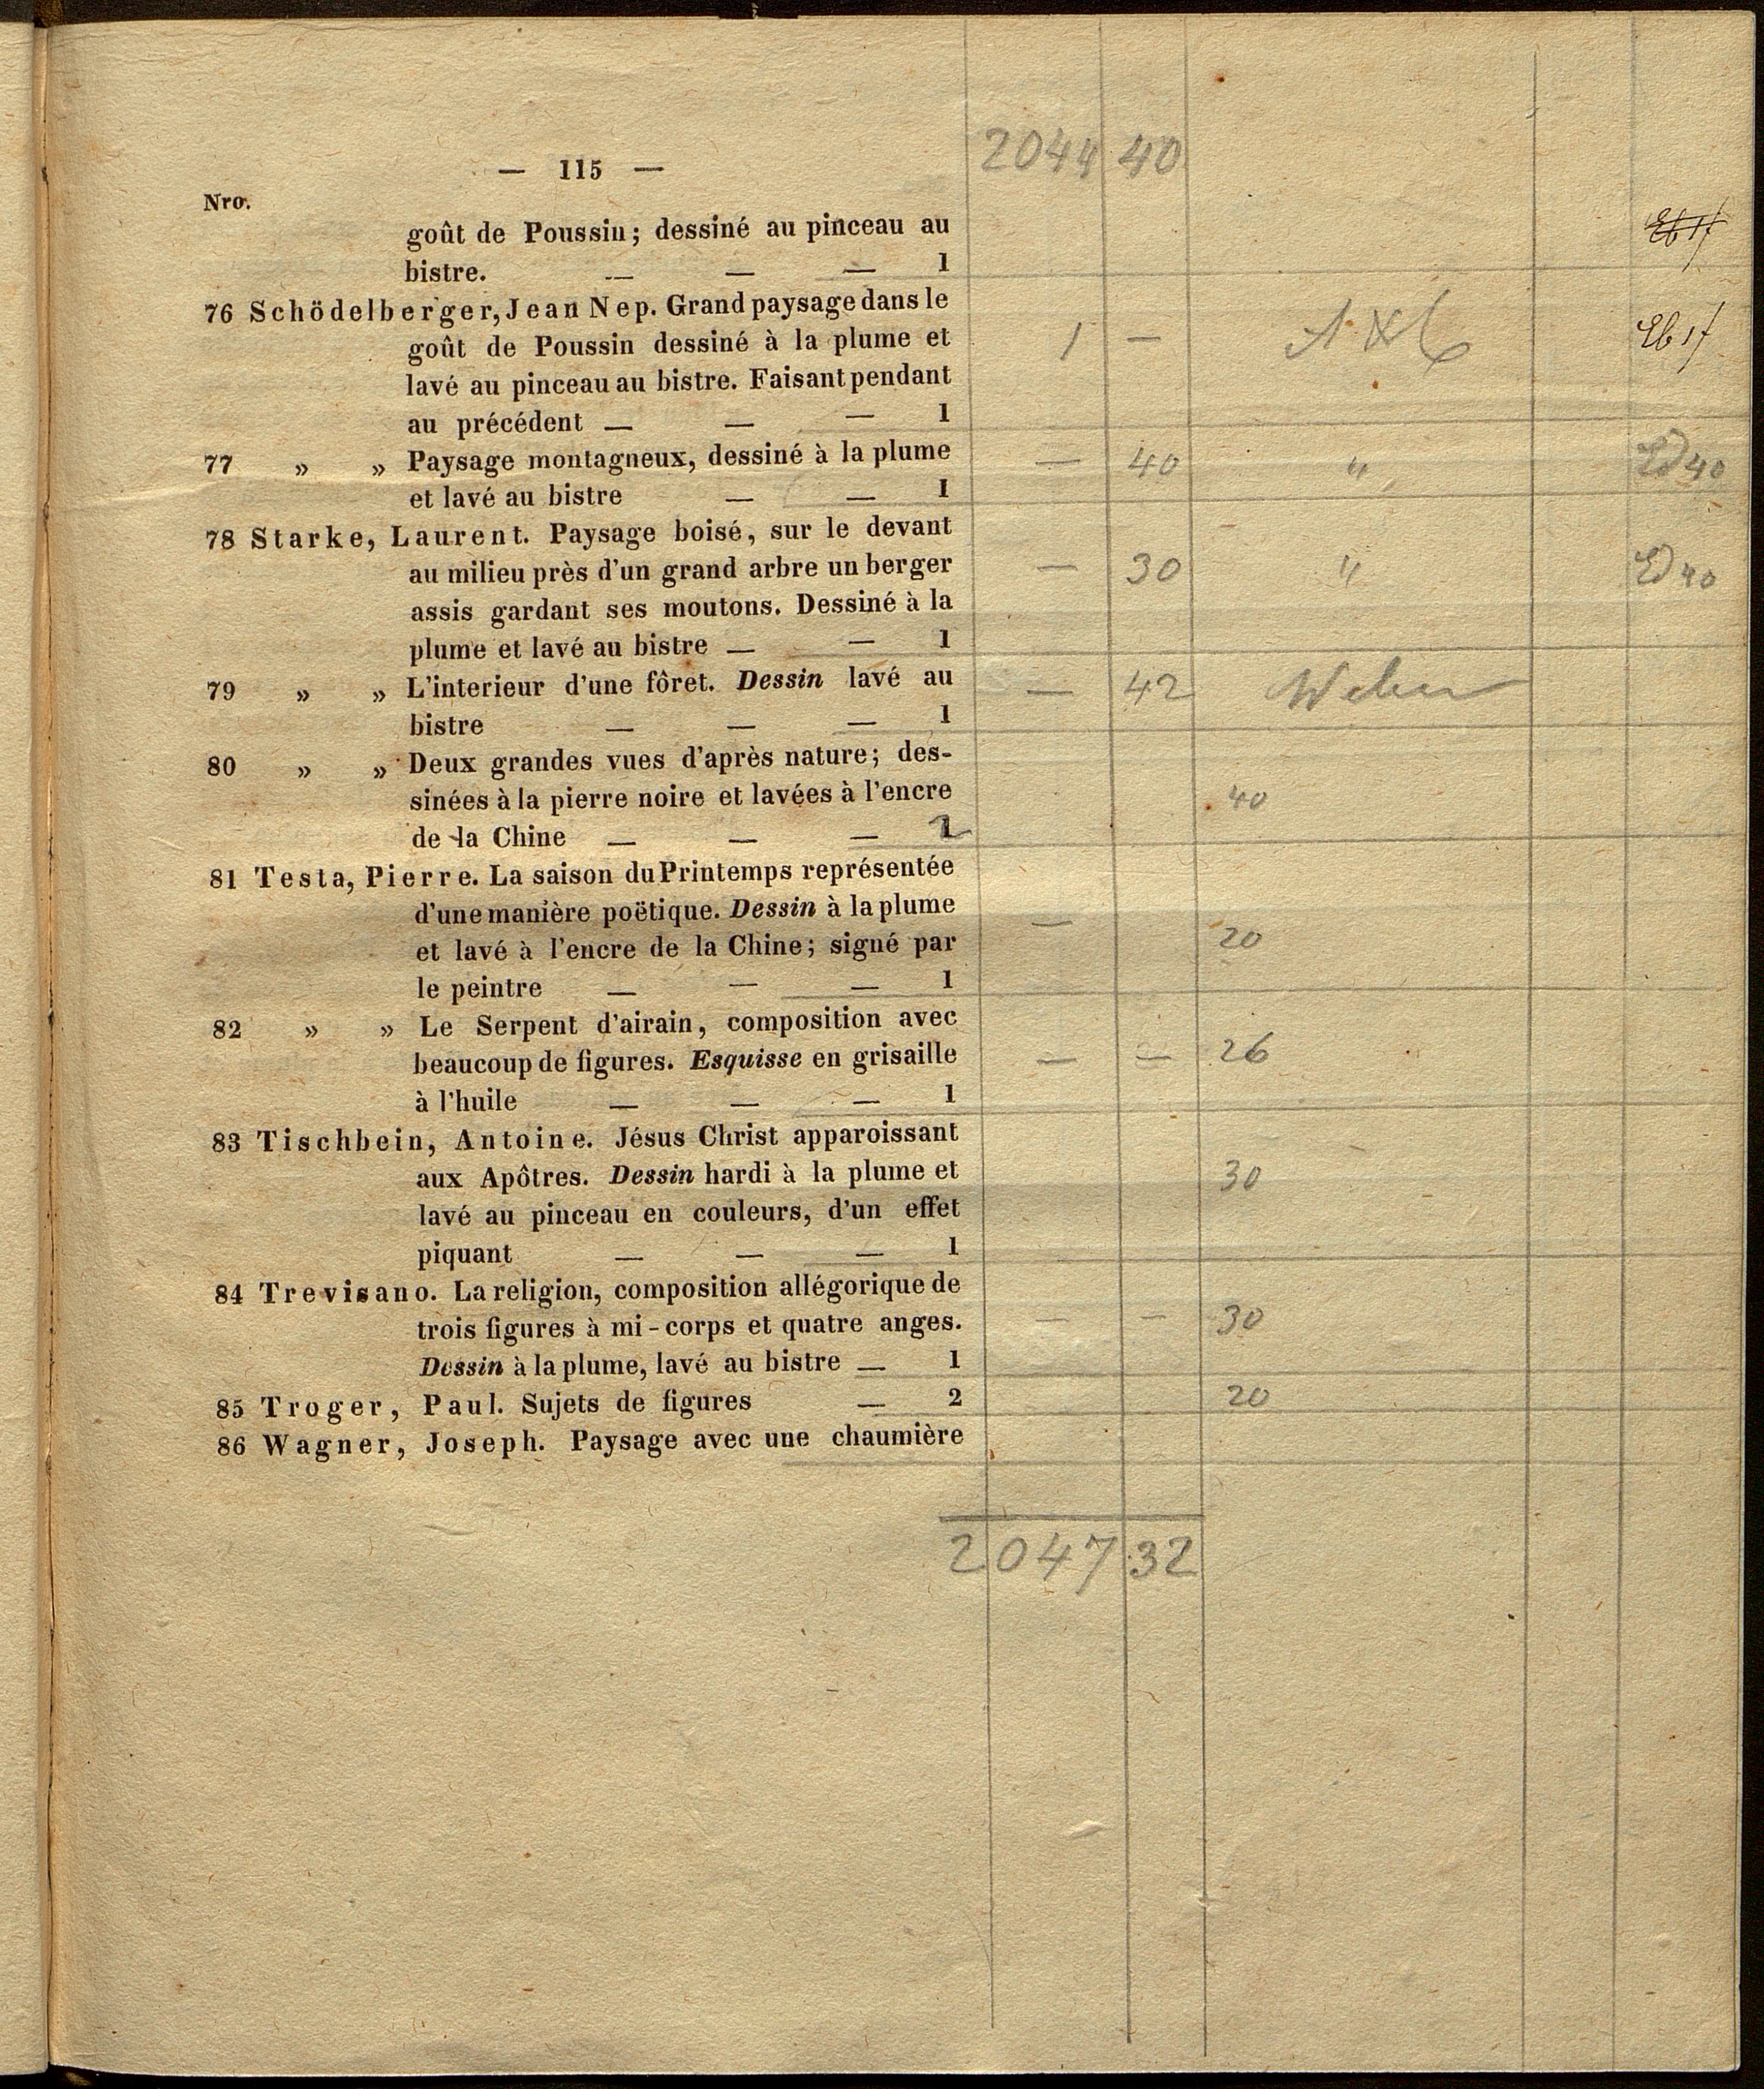 2044 40
— 115 —
Nro.
goût de Poussin; dessiné au pinceau au
bistre. — — — 1
76 Schödelberger, Jean Nep. Grand paysage dans le
goût de Poussin dessiné à la plume et 1 —
lavé au pinceau au bistre. Faisant pendant
au précédent — — — 1
77 » » Paysage montagneux, dessiné à la plume — 40 "
et lavé au bistre — — 1
78 Starke, Laurent. Paysage boisé, sur le devant
au milieu près d'un grand arbre un berger — 30 "
assis gardant ses moutons. Dessiné à la
plume et lavé au bistre — — 1
79 » » L'interieur d'une fôret. Dessin lavé au — 42 Weber
bistre — — — 1
80 » » Deux grandes vues d'après nature; des-
sinées à la pierre noire et lavées à l'encre 40
de la Chine — — — 2
81 Testa, Pierre. La saison du Printemps représentée
d'une manière poëtique. Dessin à la plume —
et lavé à l'encre de la Chine; signé par 20
le peintre — — — 1
82 » » Le Serpent d'airain, composition avec
beaucoup de figures. Esquisse en grisaille — — 26
à l'huile — — — 1
83 Tischbein, Antoine. Jésus Christ apparoissant
aux Apôtres. Dessin hardi à la plume et 30
lavé au pinceau en couleurs, d'un effet
piquant — — — 1
84 Trevisano. La religion, composition allégorique de
trois figures à mi-corps et quatre anges. — — 30
Dessin à la plume, lavé au bistre — 1
85 Troger, Paul. Sujets de figures — 2 20
86 Wagner, Joseph. Paysage avec une chaumière
2047 32